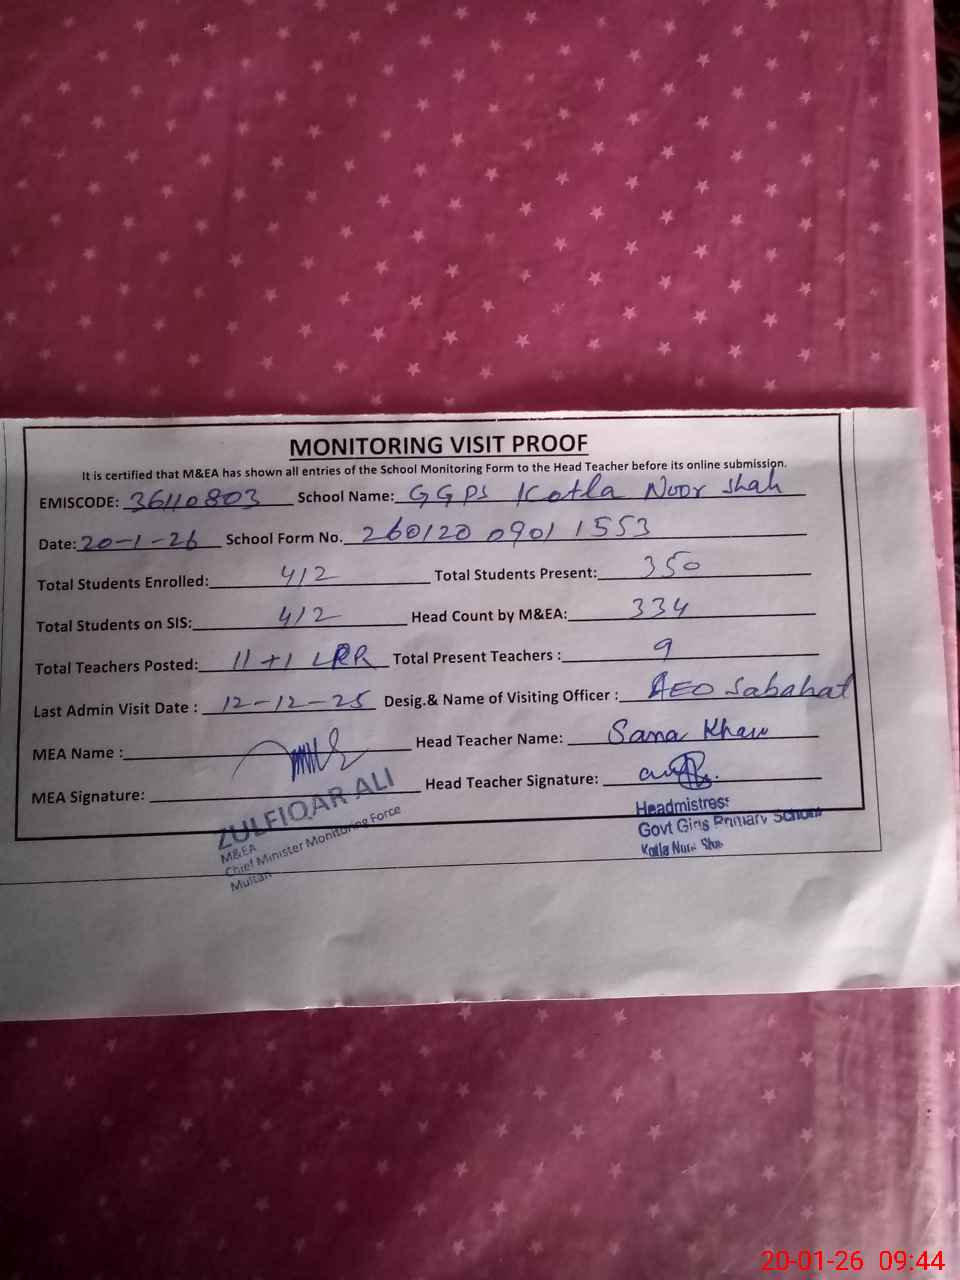 MONITORING VISIT PROOF
It is certified that M&EA has shown all entries of the School Monitoring Form to the Head Teacher before its online submission.
EMISCODE: 36110803 School Name: GGPS Kotla Noor Shah
Date: 20-1-26 School Form No. 260120 0901 1553
Total Students Enrolled: 412 Total Students Present: 350
Total Students on SIS: 412 Head Count by M&EA: 334
Total Teachers Posted: 11+1 LRR Total Present Teachers : 9
Last Admin Visit Date : 12-12-25 Desig.& Name of Visiting Officer : AEO Sabahat
MEA Name : Head Teacher Name: Sana Khan
MEA Signature: Head Teacher Signature:
ZULFIQAR ALI
M&EA
Chief Minister Monitoring Force
Multan
Headmistress
Govt Girls Primary School
Kotla Noor Shah
20-01-26 09:44